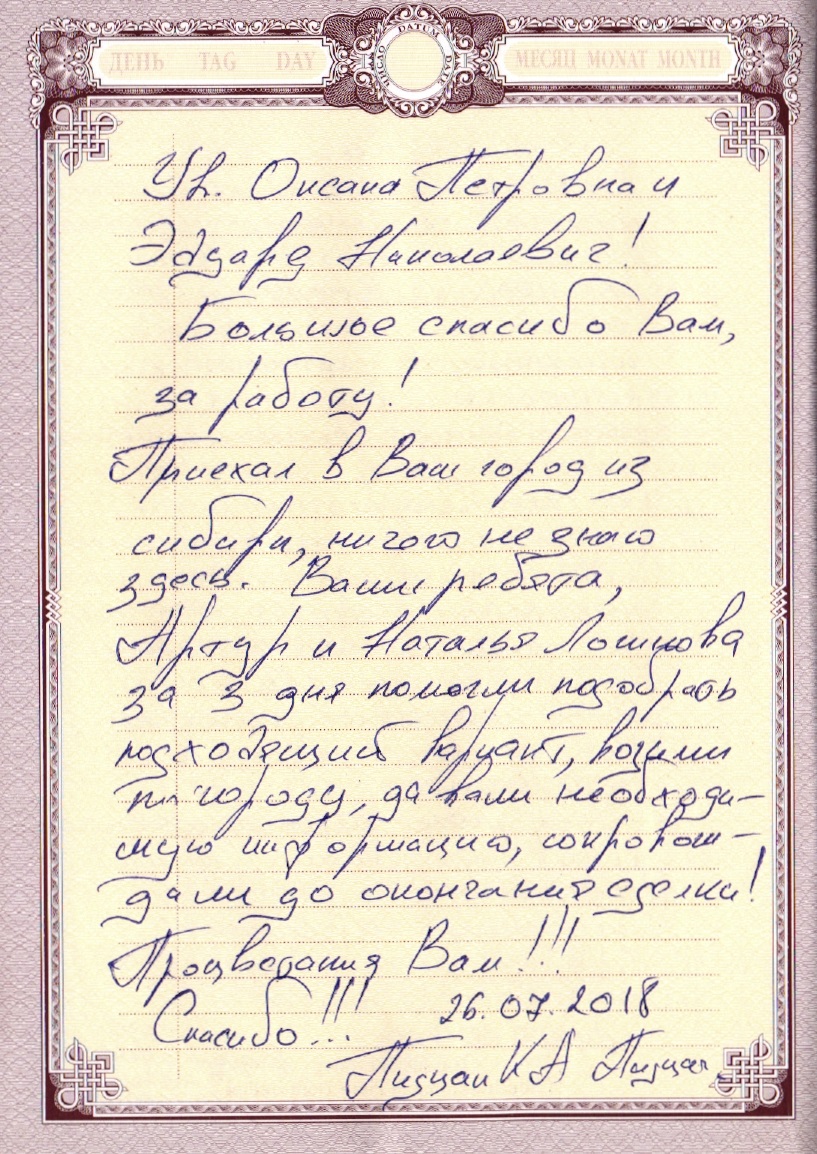 ДЕНЬ TAG DAY ЧИСЛО DATUM DATE МЕСЯЦ MONAT MONTH
Ув. Оксана Петровна и
Эдуард Николаевич!
Большое спасибо Вам,
за работу!
Приехал в Ваш город из
сибири, ничого не знаю
здесь. Ваши ребята,
Артур и Наталья
за 3 дня помогли подобрать
подходящий вариант, возили
по городу, давали необходи-
мую информацию, сопровож-
дали до окончания сделки!
Процветания Вам!!!
Спасибо!!! 26.07.2018
К А